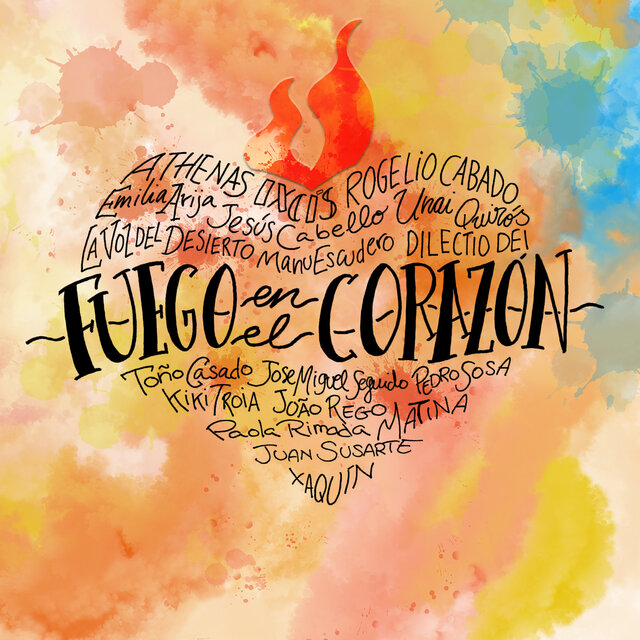 ATHENAS IXCÍS ROGELIO CABADO
Emilia Arija Jesús Cabello Unai Quirós
LA VOZ DEL DESIERTO Manu Escudero DILECTIO DEI
FUEGO en el CORAZÓN
Toño Casado Jose Miguel Seguido PEDRO SOSA
KIKI TROIA JOÃO REGO MATINA
Paola Rimada
JUAN SUSARTE
XAQUIN